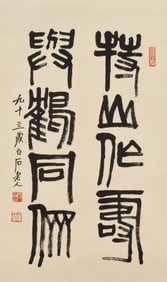 持山作壽
與鶴同
九十三歲白石老人